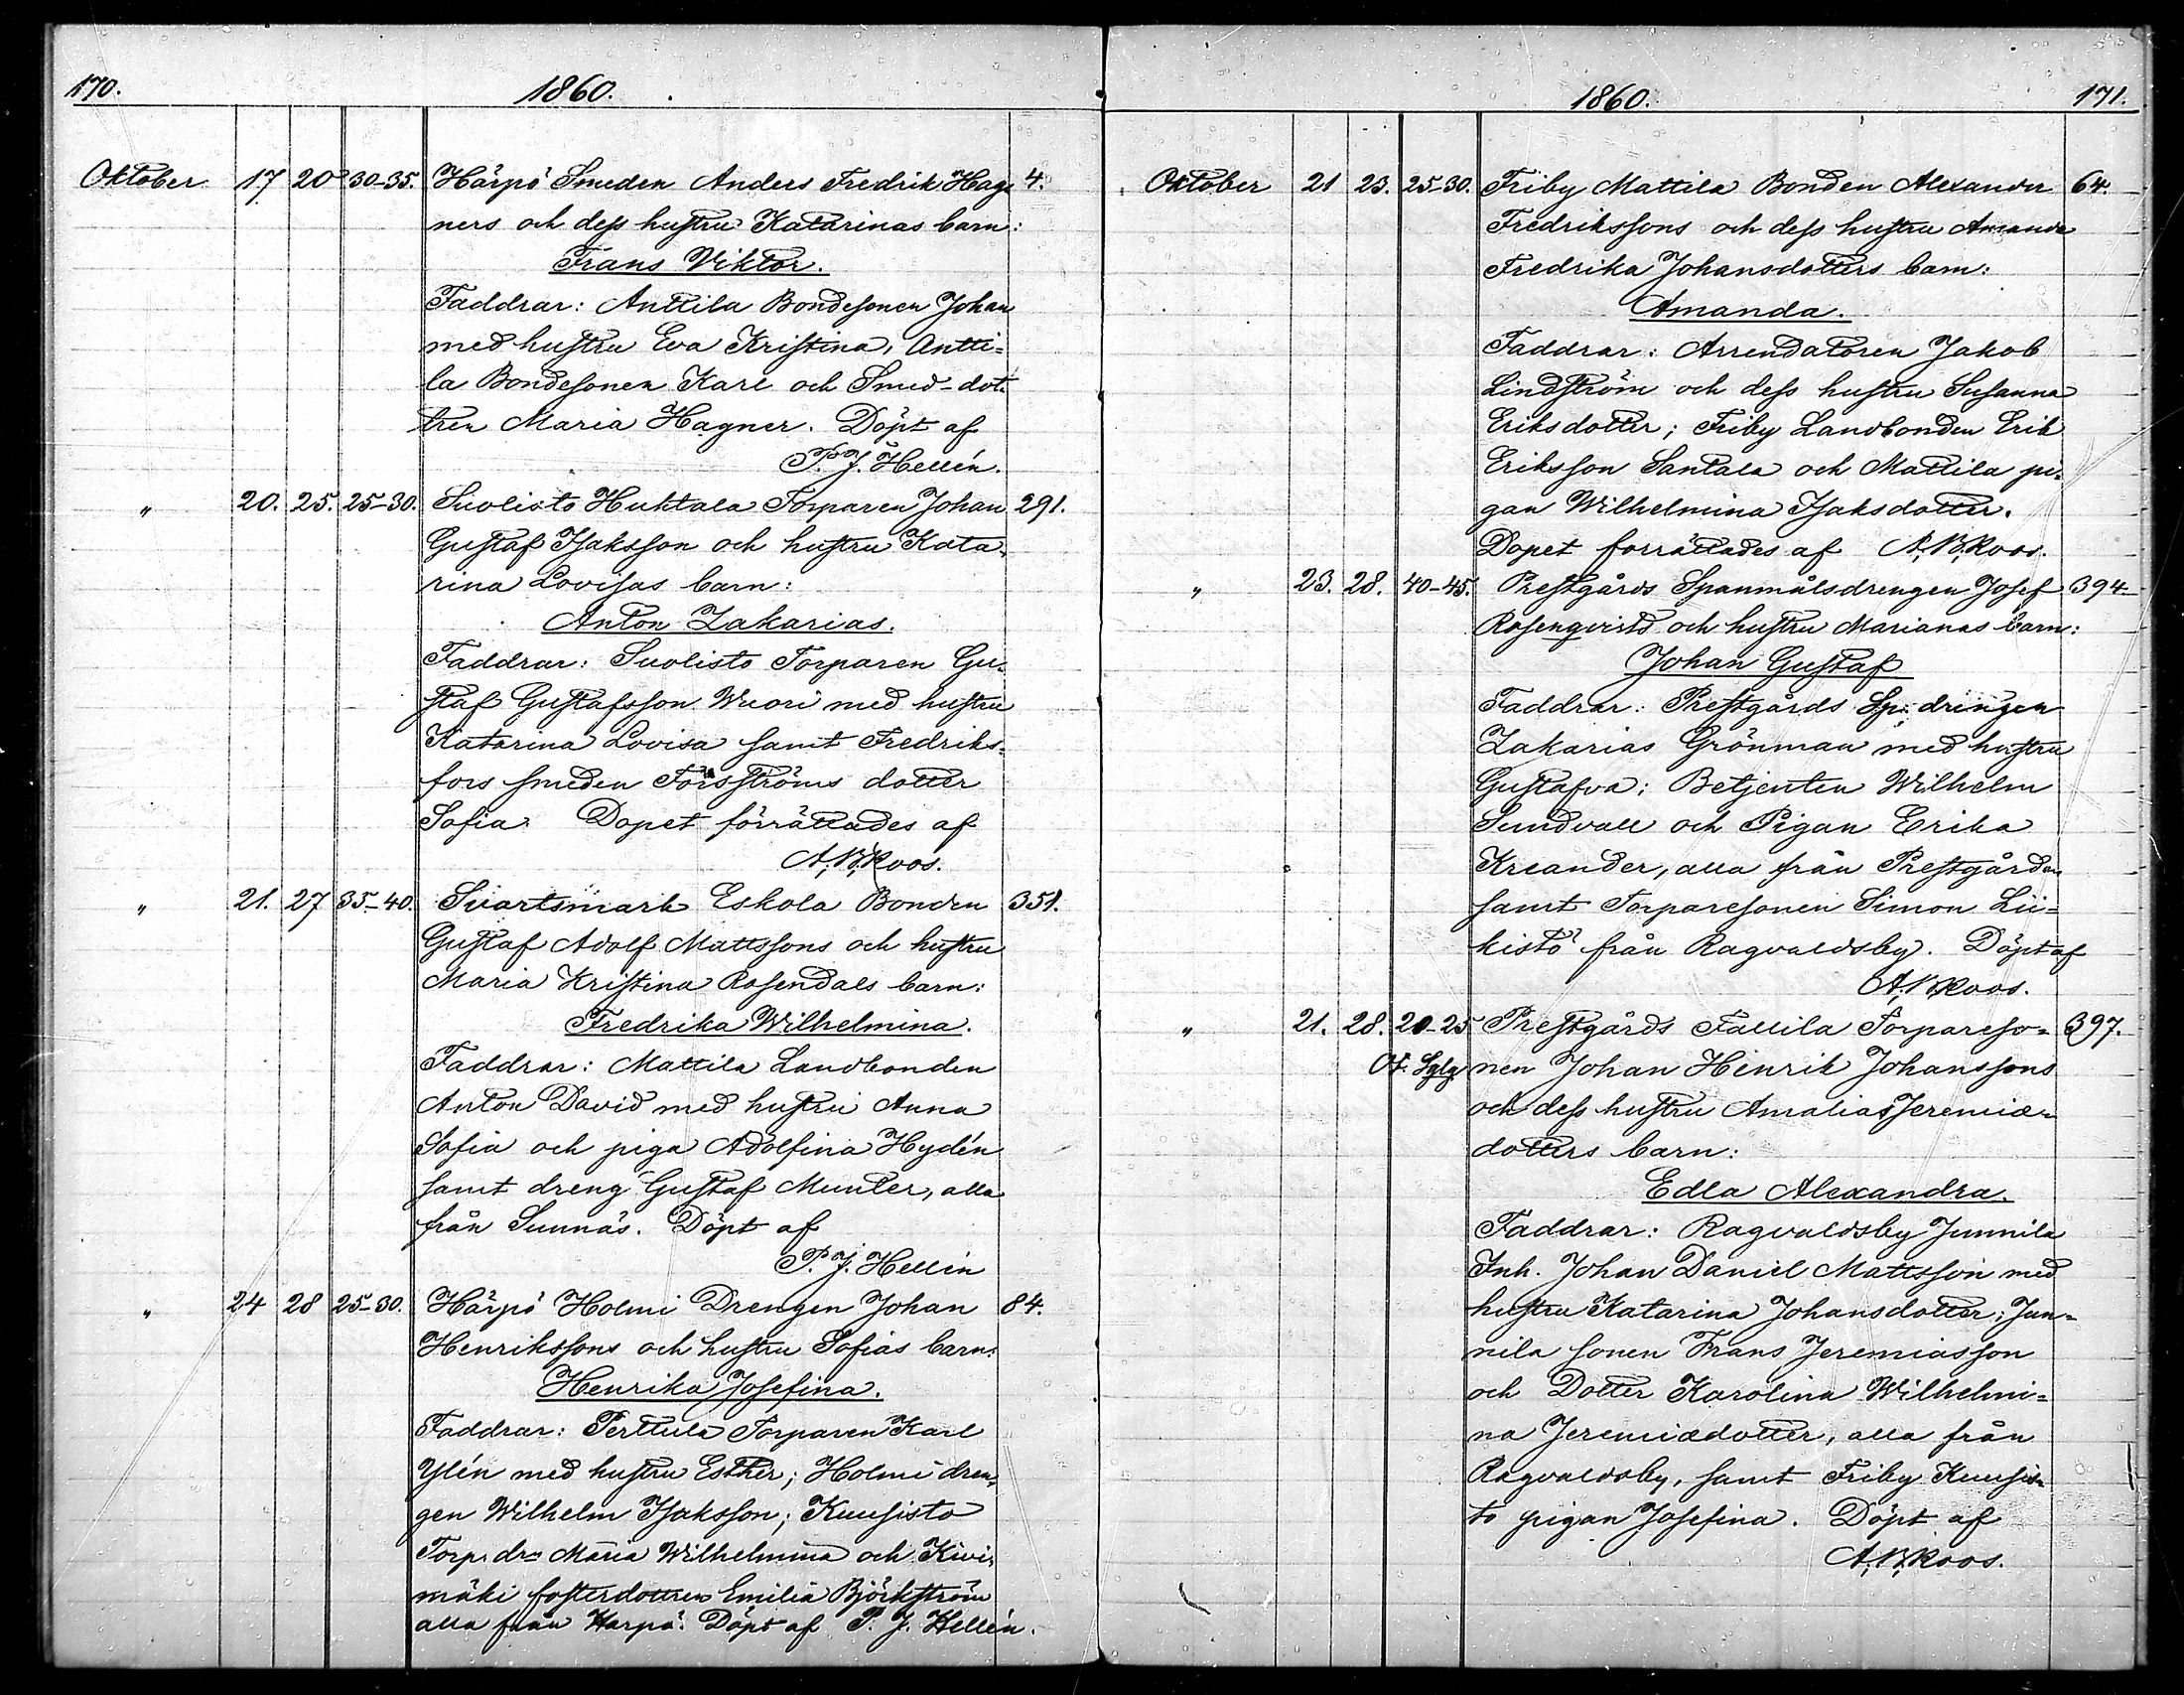 170.
1860.
Oktober 17 20 30-35. Härpö Smeden Anders Fredrik Hag- 4.
ners och dess hustru Katarinas barn:
Frans Viktor.
Faddrar: Anttila Bondesonen Johan
med hustru Eva Kristina, Antti=
la Bondesonen Karl och Smed-dot-
tren Maria Hagner. Döpt af
P. J. Hellén.
" 20. 25. 25-30. Suolisto Huhtala Torparen Johan 291.
Gustaf Isaksson och hustru Kata-
rina Lovisas barn:
Anton Zakarias.
Faddrar: Suolisto Torparen Gu-
staf Gustafsson Wuori med hustru
Katarina Lovisa samt Fredriks-
fors smeden Forsströms dotter
Sofia. Dopet förrättades af
A. W. Koos.
" 21. 27 35-40. Svartsmark Eskola Bonden 351.
Gustaf Adolf Mattssons och hustru
Maria Kristina Rosendals barn:
Fredrika Wilhelmina.
Faddrar: Mattila Landbonden
Anton David med hustru Anna
Sofia och piga Adolfina Hydén
samt dreng Gustaf Munter, alla
från Sunnäs. Döpt af
P. J. Hellén
" 24 28 25-30. Härpö Holmi Drengen Johan 84.
Henrikssons och hustru Sofias barn:
Henrika Josefina.
Faddrar: Perttula Torparen Karl
Ylén med hustru Esther; Holmi dren-
gen Wilhelm Isaksson; Kuusisto
Torp. dr Maria Wilhelmina och Kivi-
mäki fosterdottren Emilia Björkström
alla från Harpö. Döpt af P. J. Hellén.
1860.
171.
Oktober 21 23. 25-30. Friby Mattila Bonden Alexander 64.
Fredrikssons och dess hustru Amanda
Fredrika Johansdotters barn:
Amanda.
Faddrar: Arrendatoren Jakob
Lindström och dess hustru Susanna
Eriksdotter; Friby Landbonden Erik
Eriksson Santala och Mattila pi-
gan Wilhelmina Isaksdotter.
Dopet forrättades af A. W. Koos.
" 23. 28. 40-45. Prestgårds Spanmålsdrengen Josef 394.
Rosenqvists och hustru Marianas barn:
Johan Gustaf
Faddrar: Prestgårds Sp: drengen
Zakarias Grönman med hustru
Gustafva; Betjenten Wilhelm
Sundvall och Pigan Erika
Kreander, alla från Prestgården
samt Torparesonen Simon Lii=
kistö från Ragvaldsby. Döpt af
A. W. Koos.
" 21. 28. 20-25 Prestgårds Fallila Torpareso= 397.
Of. Sglg nen Johan Henrik Johanssons
och dess hustru Amalias Jeremiæ-
dotters barn:
Edla Alexandra.
Faddrar: Ragvaldsby Junnila
Inh. Johan Daniel Mattsson med
hustru Katarina Johansdotter; Jun=
nila sonen Frans Jeremiasson
och Dotter Karolina Wilhelmi=
na Jeremiædotter, alla från
Ragvaldsby, samt Friby Kuusis-
to pigan Josefina. Döpt af
A. W. Koos.